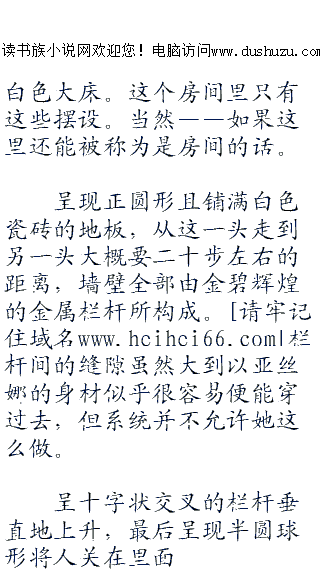 读书族小说网欢迎您！电脑访问www.dushuzu.com
白色大床。这个房间里只有
这些摆设。当然——如果这
里还能被称为是房间的话。
呈现正圆形且铺满白色
瓷砖的地板，从这一头走到
另一头大概要二十步左右的
距离，墙壁全部由金碧辉煌
的金属栏杆所构成。[请牢记
住域名www.hcihci66.com|栏
杆间的缝隙虽然大到以亚丝
娜的身材似乎很容易便能穿
过去，但系统并不允许她这
么做。
呈十字状交叉的栏杆垂
直地上升，最后呈现半圆球
形将人关在里面